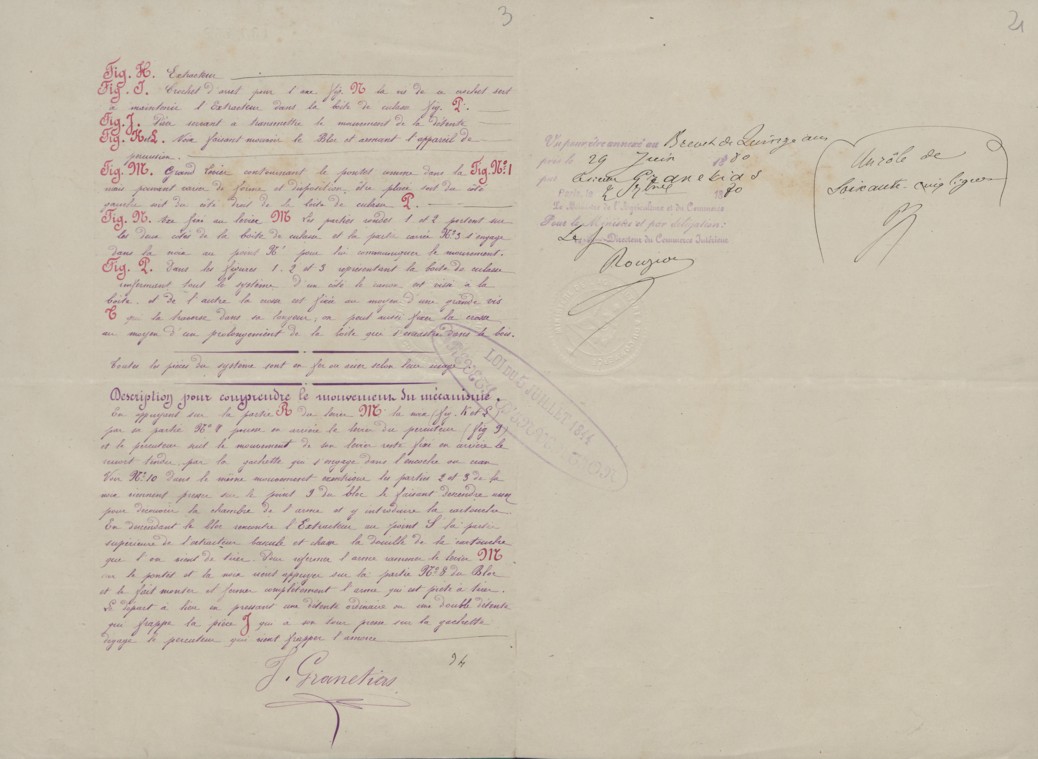 3
Fig. H. Extracteur
Fig. I. Crochet d'arret pour l'axe fig. N la vis de ce crochet sert
à maintenir l'Extracteur dans la boite de culasse fig. P.
Fig. J. Pièce servant a transmettre le mouvement de la détente
Fig. K et L. Noix faisant mouvoir le Bloc et armant l'appareil de
percussion.
Fig. M. Grand levier contournant le pontet comme dans la Fig. N° 1
mais pouvant varier de forme et disposition, être placé soit du côté
gauche soit du côté droit de la boite de culasse P.
Fig. N. Axe fixé au levier M Les parties rondes 1 et 2 portent sur
les deux côtés de la boite de culasse et la partie carrée N° 3 s'engage
dans la noix au point K' pour lui communiquer le mouvement.
Fig. P. Dans les figures 1. 2 et 3 représentent la boite de culasse
renfermant tout le système d'un côté le canon est vissé à la
boite. et de l'autre la crosse est fixée au moyen d'une grande vis
T qui la traverse dans sa longueur, on peut aussi fixer la crosse
au moyen d'un prolongement de la boite que s'encastre dans le bois.
Toutes les pièces du système sont en fer ou acier selon leur usage
Description pour comprendre le mouvement du mécanisme.
En appuyant sur la partie R du levier M la noix (fig. K et L)
par sa partie N° 9 pousse en arrière le levier du percuteur (fig 9)
et le percuteur suit le mouvement de son levier reste fixe en arrière le
ressort tendu, par la gachette qui s'engage dans l'encoche ou cran
Voir N° 10 dans le même mouvement les parties 2 et 3 de la
noix viennent presser sur le point 9 du bloc le faisant descendre
pour découvrir la chambre de l'arme et y introduire la cartouche
En descendant le bloc rencontre l'Extracteur au point S la partie
supérieure de l'extracteur bascule et chasse la douille de la cartouche
que l'on vient de tirer. Pour refermer l'arme ramener le levier M
sur le pontet et la noix vient appuyer sur la partie N° 8 du Bloc
et le fait monter et fermer complètement l'arme qui est prête à tirer.
Le départ a lieu en pressant une détente ordinaire ou une double détente
qui frappe la pièce J qui a son tour presse sur la gachette
dégage le percuteur qui vient frapper l'amorce
34
J. Granetias
LOI DU 5 JUILLET 1844
2
Vu pour être annexé au Brevet de Quinze ans
pris le 29 Juin 1880
par Granetias
Paris, le 1880
Le Ministre de l'Agriculture et du Commerce
Pour le Ministre et par délégation:
Le Directeur du Commerce Intérieur
Un rôle de
Soixante-cinq lignes